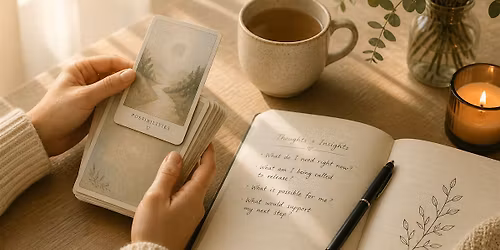 POSSIBILITIES
Thoughts + Insights
• What do I need right now?
• What am I being called
to release?
• What is possible for me?
• What would support
my next step?